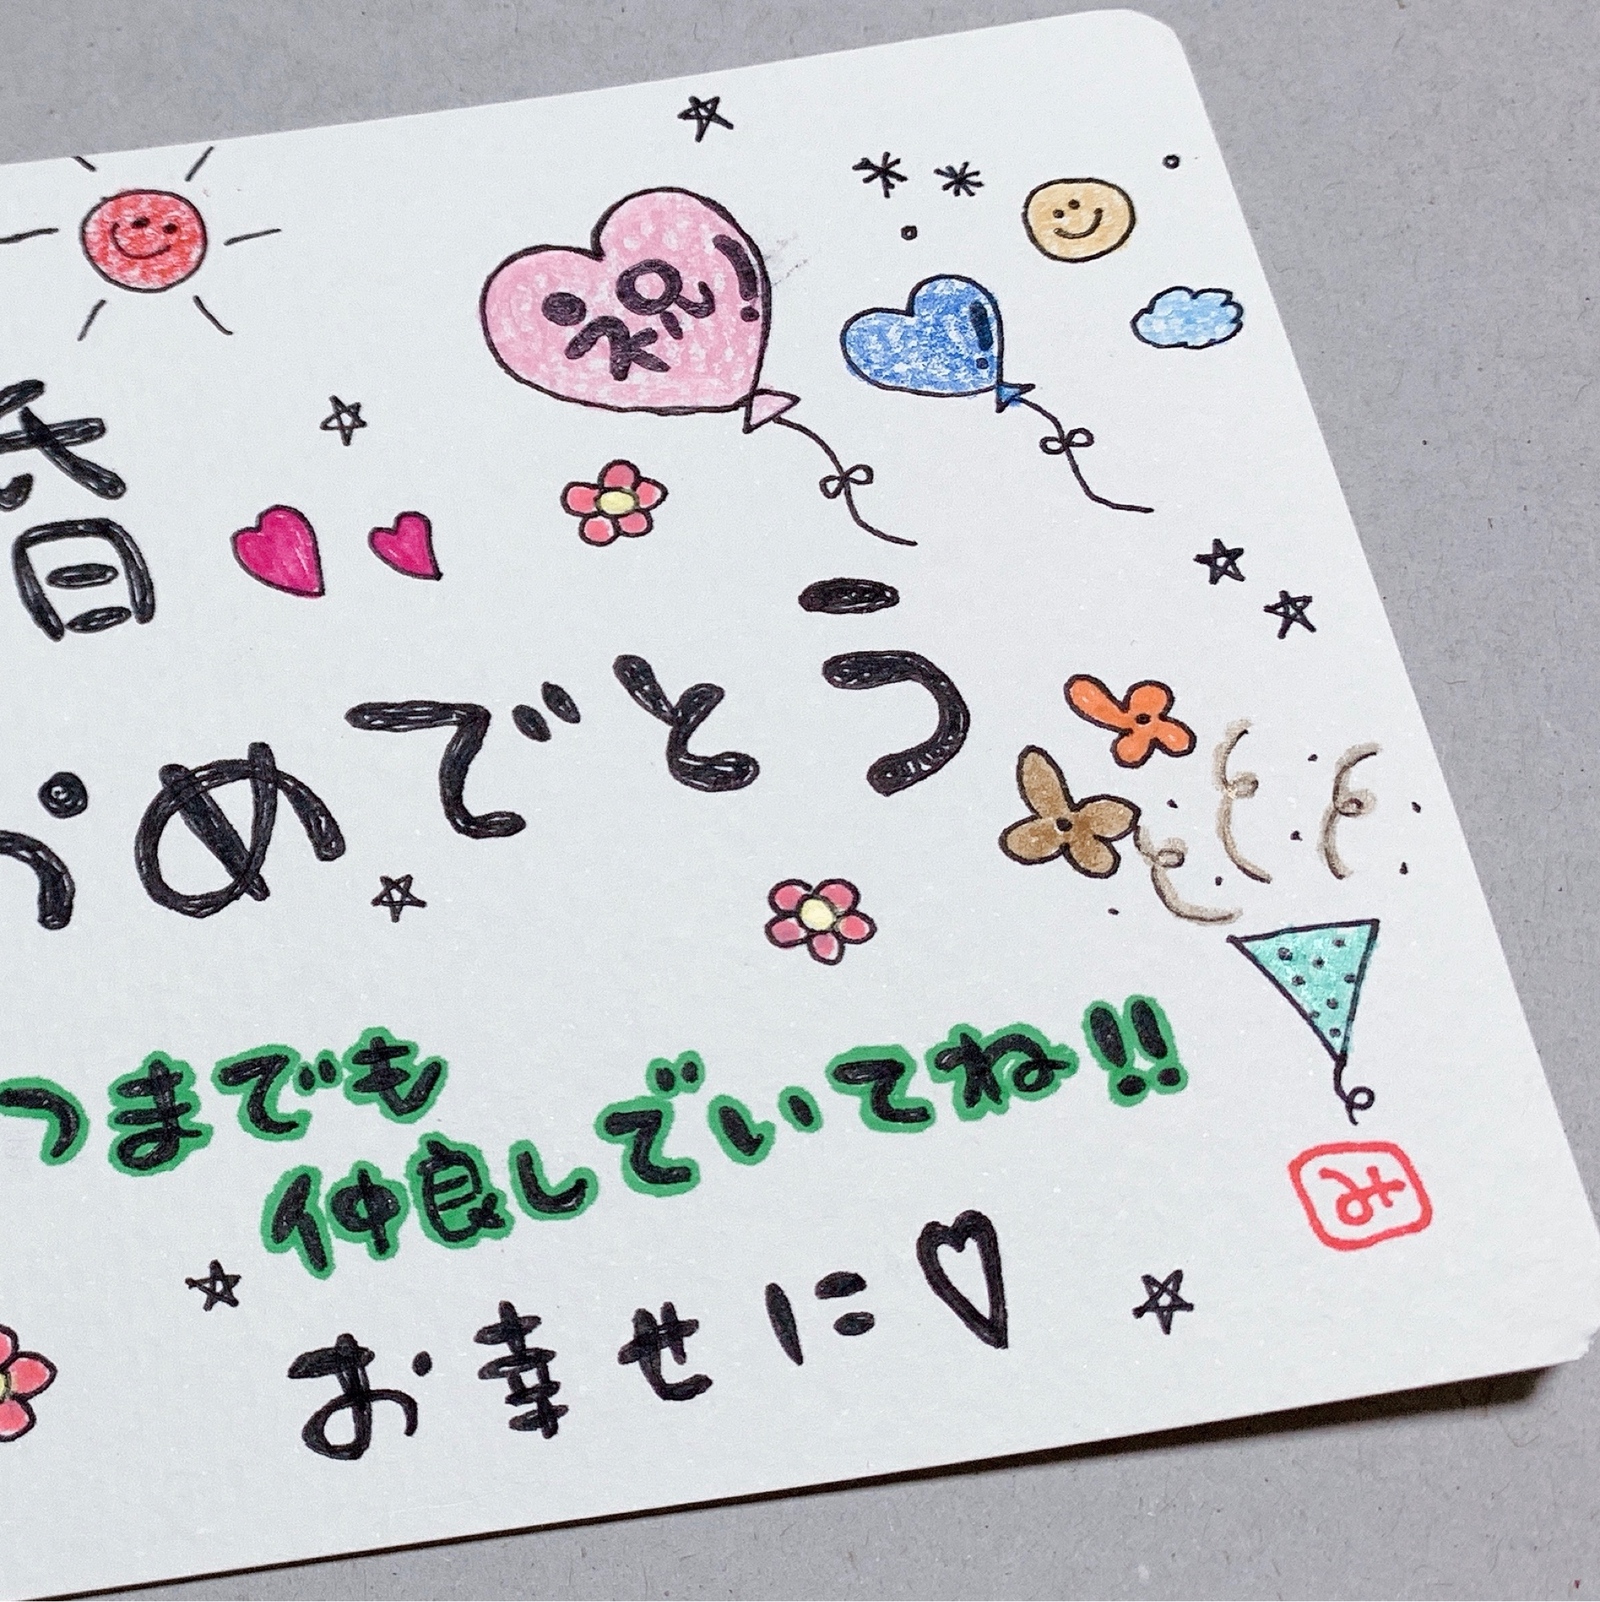 祝!
婚
おめでとう
つまでも
仲良しでいてね!!
お幸せに♡
み